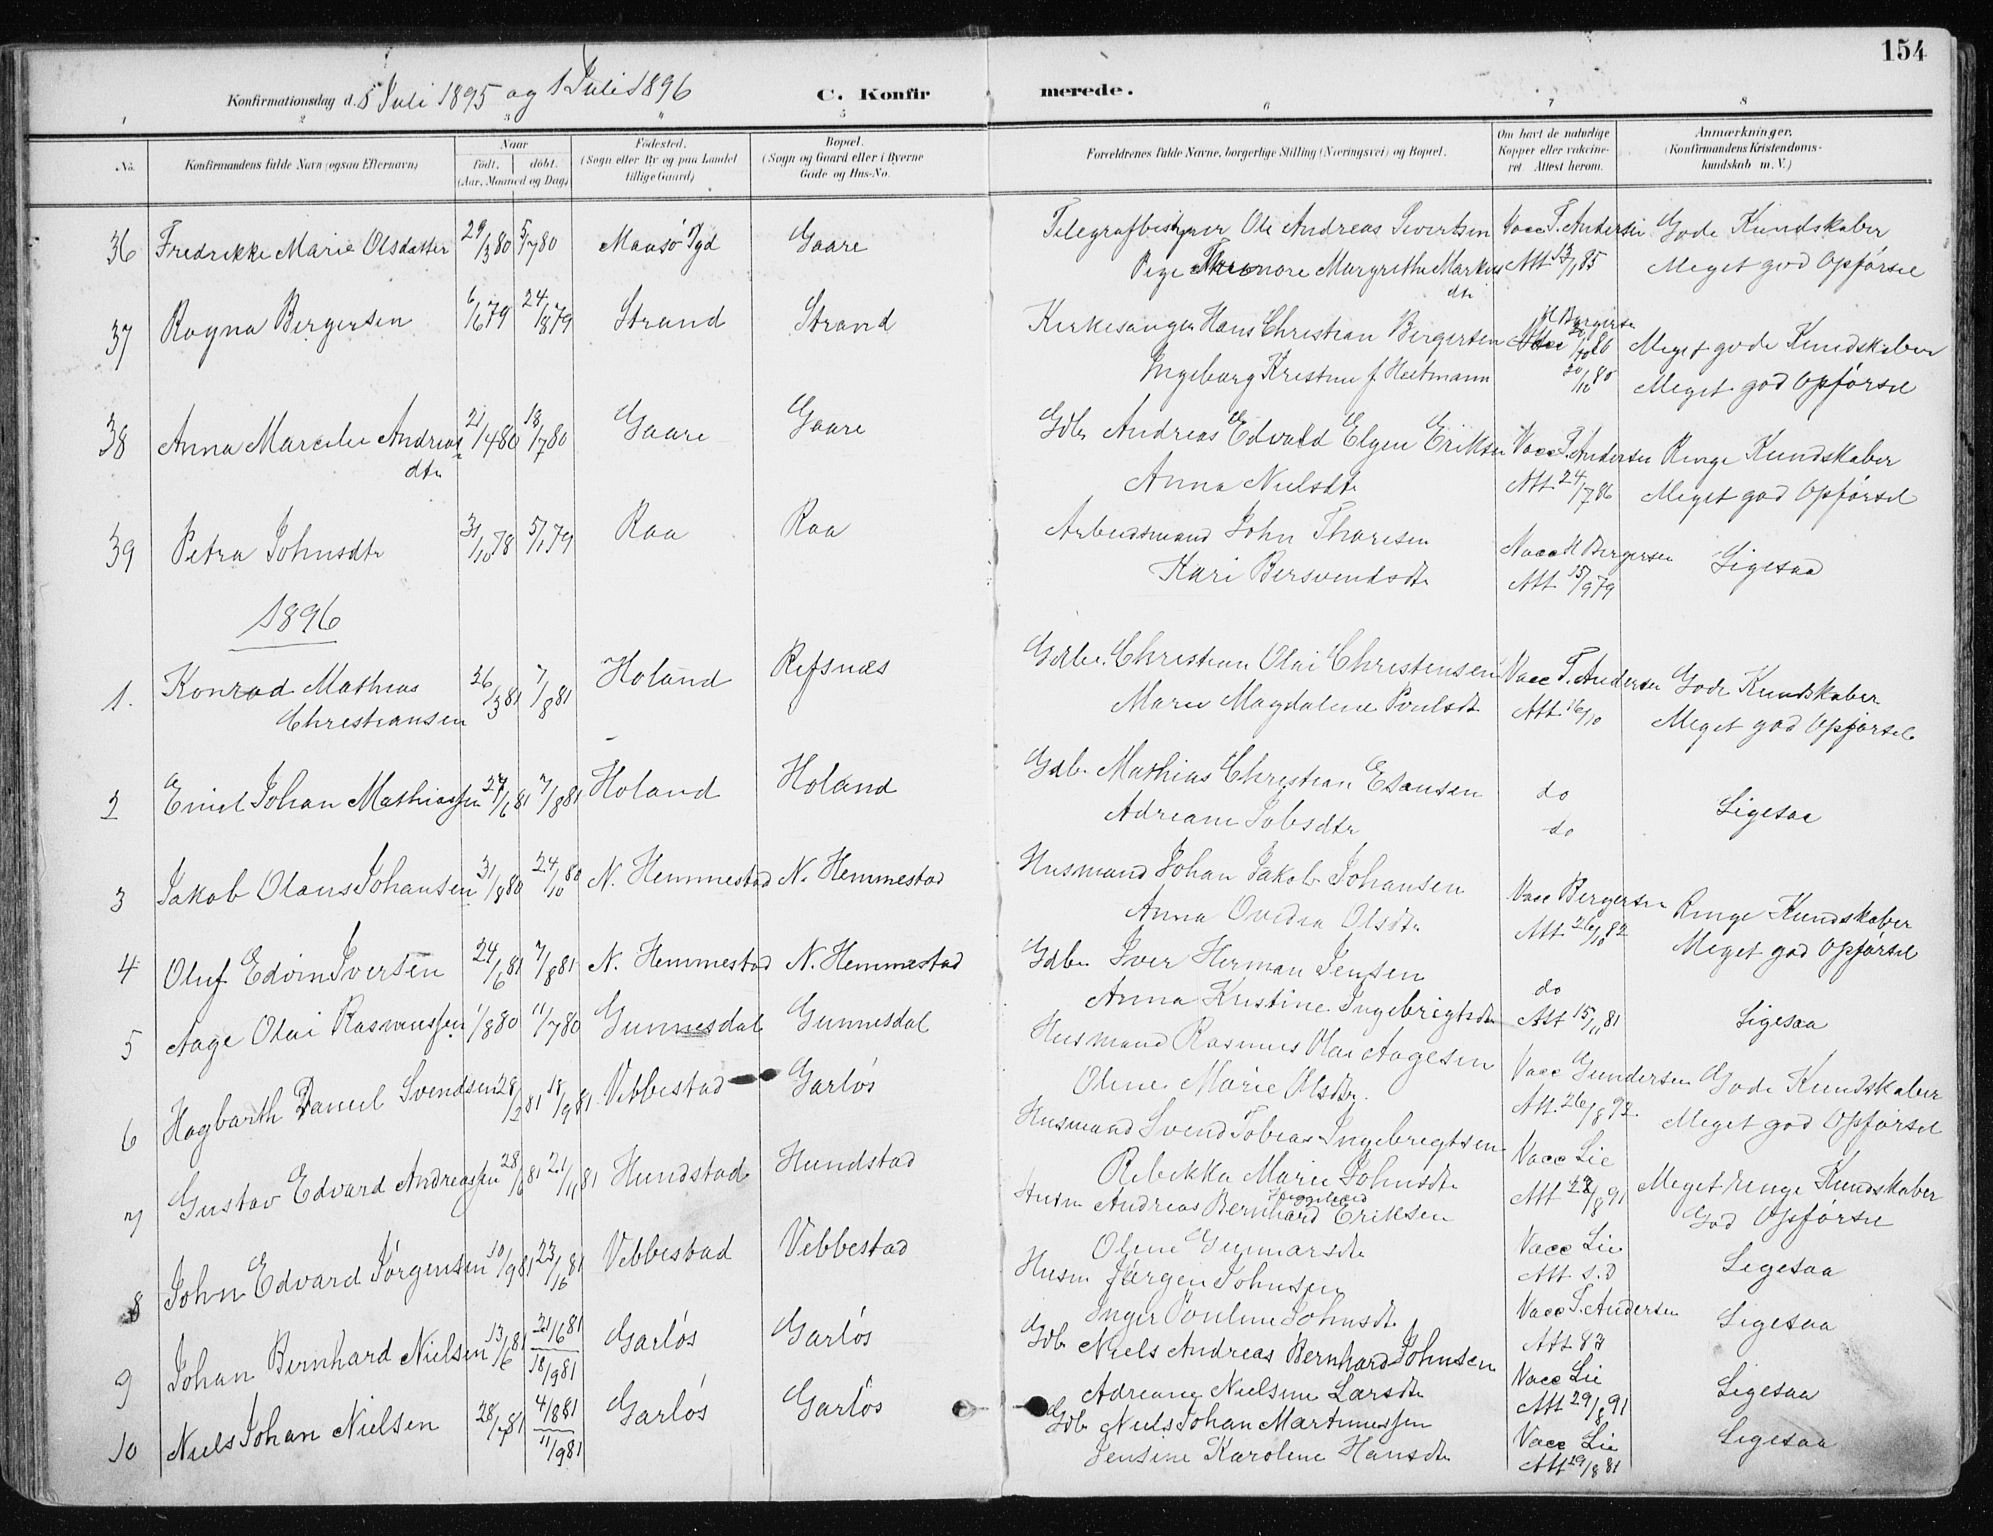 154
Konfirmationsdag d. 5 Juli 1895 og 1 Juli 1896 C. Konfirmerede.
1 2 3 4 5 6 7 8
No. Konfirmandens fulde Navn (ogsaa Efternavn) Naar født, døbt. (Aar, Maaned og Dag) Fødested. (Sogn eller By og paa Landet tillige Gaard) Bopæl. (Sogn og Gaard eller i Byerne Gade og Hus-No. Forældrenes fulde Navne, borgerlige Stilling (Næringsvei) og Bopæl. Om havt de naturlige Kopper eller vakcineret. Attest herom. Anmærkninger. (Konfirmandens Kristendomskundskab m. V.)
36 Fredrikke Marie Olsdatter 29/3 80 5/7 80 Maasø Pgd Gaare Telegrafbestyrer Ole Andreas Sivertsen Vacc T. Andersen Gode Kundskaber
Pige Margrethe Markus dtr Att 13/1 85 Meget god Opførsel
37 Ragna Bergersen 6/6 79 24/8 79 Strand Strand Kirkesanger Hans Christian Bergersen H Bergersen Meget gode Kundskaber
Ingeborg Kristine f. Heitmann 20/10 80 Meget god Opførsel
38 Anna Marcelie Andreas dtr 21/4 80 18/7 80 Gaare Gaare Gdbr Andreas Edvald Elgen Eriksen Vacc T. Andersen Ringe Kundskaber
Anna Nielsdtr Att 24/7 86 Meget god Opførsel
39 Petra Johnsdtr 31/10 78 5/1 79 Raa Raa Arbeidsmand John Thoresen Vacc H Bergersen Ligesaa
Kari Bersvendsdtr Att 15/9 79
1896
1. Konrad Mathias Christiansen 26/3 81 7/8 81 Holand Refsnæs Gdbr. Christian Olai Christensen Vacc T. Andersen Gode Kundskaber
Marie Magdalene Poulsdtr Att 16/10 Meget god Opførsel
2 Emil Johan Mathiassen 27/6 81 7/8 81 Holand Holand Gdbr. Mathias Christian Esansen do Ligesaa
Adriane Jobsdtr do
3 Jakob Olaus Johansen 31/8 80 24/10 80 N. Hemmestad N. Hemmestad Husmand Johan Jakob Johansen Vacc Bergersen Ringe Kundskaber
Anna Ovedia Olsdtr Att 26/10 82 Meget god Opførsel
4 Oluf Edvin Iversen 24/6 81 7/8 81 N. Hemmestad N. Hemmestad Gdbr Iver Herman Jensen do Ligesaa
Anna Kristine Ingebrigtsdtr Att 15/11 81
5 Aage Olai Rasmussen 1/3 80 11/7 80 Gunnesdal Gunnesdal Husmand Rasmus Olai Aagesen Vacc Gundersen Gode Kundskaber
Oline Marie Olsdtr. Att. 26/8 92 Meget god Opførsel
6 Hagbarth Daniel Svendsen 28/2 81 18/9 81 Vebbestad Garløs Husmand Svend Tobias Ingebrigtsen Vacc Lie Meget ringe Kundskaber
Rebekka Marie Johnsdtr Att 29/8 91 God Opførsel
7 Gustav Edvard Andreassen 28/6 81 21/11 81 Hundstad Hundstad Husm Andreas Bernhard Eriksen Vacc Lie Ligesaa
Oline Gunnarsdtr Att s. D
8 John Edvard Jørgensen 10/9 81 23/10 81 Vebbestad Vebbestad Husm Jørgen Johnsen Vacc T. Andersen Ligesaa
Inger Pouline Johnsdtr Att 83
9 Johan Bernhard Nielsen 13/6 81 21/6 81 18/9 81 Garløs Garløs Gdb Niels Andreas Bernhard Johnsen Vacc Lie Ligesaa
Adriane Nielsine Larsdtr Att 29/8 91
10 Niels Johan Nielsen 28/7 81 4/8 81 11/9 81 Garløs Garløs Gdb Niels Johan Martinussen Vacc Lie Ligesaa
Jensine Karoline Hansdtr Att 29/8 81